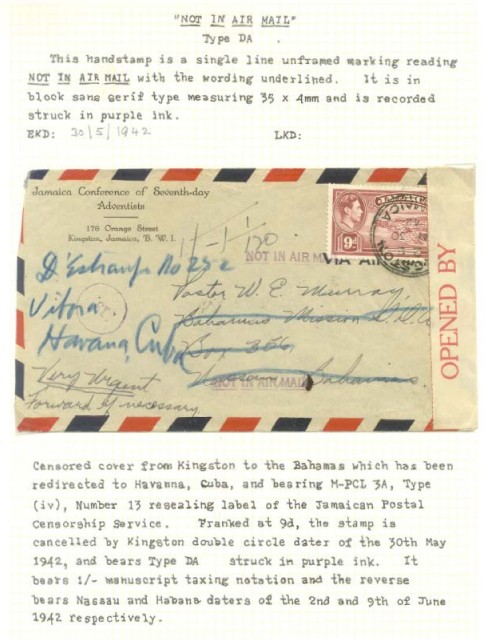 "NOT IN AIR MAIL"
Type DA .
This handstamp is a single line unframed marking reading
NOT IN AIR MAIL with the wording underlined. It is in
block sans serif type measuring 35 x 4mm and is recorded
struck in purple ink.
EKD: 30/5/1942 LKD:
Jamaica Conference of Seventh-day
Adventists
176 Orange Street
Kingston, Jamaica, B. W. I.
9D
JAMAICA
NOT IN AIR MAIL
VIA AIR
D'Estrampe No 252
Vibora
Havana, Cuba
Pastor W. E. Murray
Bahamas Mission S.D.A.
Box 356
Nassau, Bahamas
NOT IN AIR MAIL
Very Urgent
Forward if necessary
OPENED BY
Censored cover from Kingston to the Bahamas which has been
redirected to Havanna, Cuba, and bearing M-PCL 3A, Type
(iv), Number 13 resealing label of the Jamaican Postal
Censorship Service. Franked at 9d, the stamp is
cancelled by Kingston double circle dater of the 30th May
1942, and bears Type DA struck in purple ink. It
bears 1/- manuscript taxing notation and the reverse
bears Nassau and Habana daters of the 2nd and 9th of June
1942 respectively.